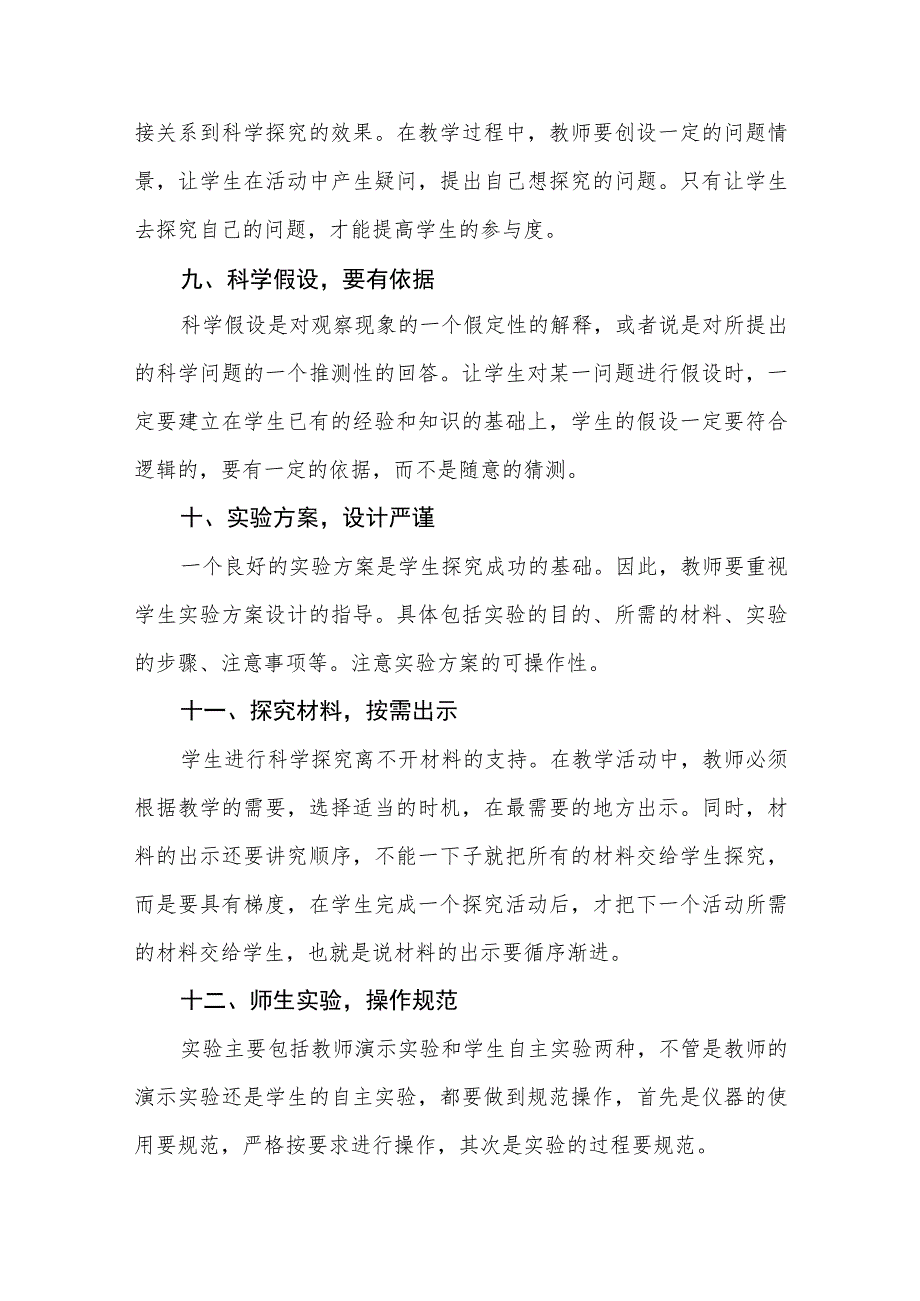 接关系到科学探究的效果。在教学过程中，教师要创设一定的问题情
景，让学生在活动中产生疑问，提出自己想探究的问题。只有让学生
去探究自己的问题，才能提高学生的参与度。
九、科学假设，要有依据
科学假设是对观察现象的一个假定性的解释，或者说是对所提出
的科学问题的一个推测性的回答。让学生对某一问题进行假设时，一
定要建立在学生已有的经验和知识的基础上，学生的假设一定要符合
逻辑的，要有一定的依据，而不是随意的猜测。
十、实验方案，设计严谨
一个良好的实验方案是学生探究成功的基础。因此，教师要重视
学生实验方案设计的指导。具体包括实验的目的、所需的材料、实验
的步骤、注意事项等。注意实验方案的可操作性。
十一、探究材料，按需出示
学生进行科学探究离不开材料的支持。在教学活动中，教师必须
根据教学的需要，选择适当的时机，在最需要的地方出示。同时，材
料的出示还要讲究顺序，不能一下子就把所有的材料交给学生探究，
而是要具有梯度，在学生完成一个探究活动后，才把下一个活动所需
的材料交给学生，也就是说材料的出示要循序渐进。
十二、师生实验，操作规范
实验主要包括教师演示实验和学生自主实验两种，不管是教师的
演示实验还是学生的自主实验，都要做到规范操作，首先是仪器的使
用要规范，严格按要求进行操作，其次是实验的过程要规范。